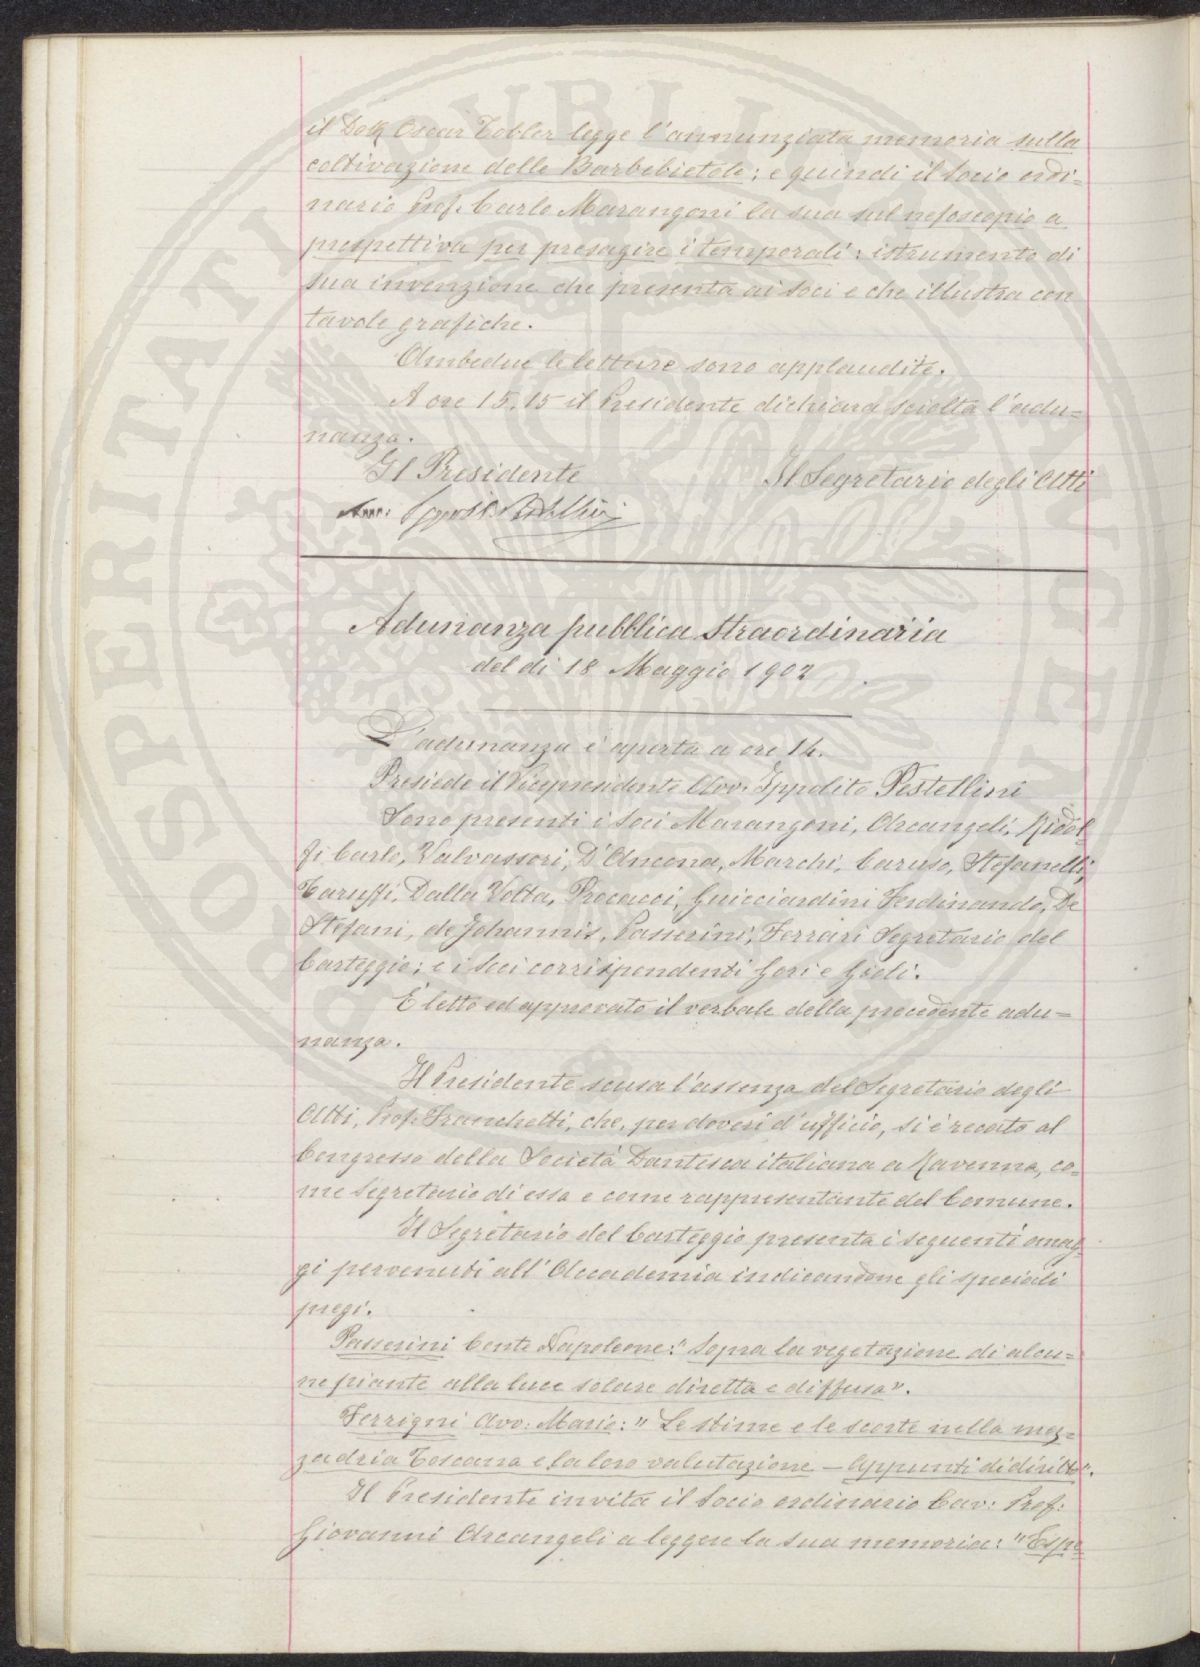 il Dott Oscar Tobler legge l'annunziata memoria sulla
coltivazione delle Barbebietole; e quindi il Socio ordi=
nario Prof. Carlo Marangoni la sua sul nefoscopio a
prospettiva per presagire i temporali: istrumento di
sua invenzione che presenta ai Soci e che illustra con
tavole grafiche.
Ambedue le letture sono applaudite.
A ore 15,15 il Presidente dichiara sciolta l'adu=
nanza.
Il Presidente Il Segretario degli Atti
Avv:
Adunanza pubblica straordinaria
del dì 18 Maggio 1902
L'adunanza è aperta a ore 14.
Presiede il Vicepresidente Avv. Ippolito Pestellini
Sono presenti i Soci Marangoni, Arcangeli, Ridol-
fi Carlo, Valvassori, D'Ancona, Marchi, Caruso, Stefanelli,
Taruffi, Dalla Volta, Procacci, Guicciardini Ferdinando, De
Stefani, de Johannis, Passerini, Ferrari Segretario del
Carteggio; e i Soci corrispondenti Gori e Gioli.
È letto ed approvato il verbale della precedente adu=
nanza.
Il Presidente scusa l'assenza del Segretario degli
Atti, Prof. Franchetti, che, per doveri d'ufficio, si è recato al
Congresso della Società Dantesca italiana a Ravenna, co=
me Segretario di essa e come rappresentante del Comune.
Il Segretario del Carteggio presenta i seguenti omag-
gi pervenuti all'Accademia indicandone gli speciali
pregi.
Passerini Conte Napoleone: "Sopra la vegetazione di alcu=
ne piante alla luce solare diretta e diffusa".
Ferrigni Avv: Mario: "Le stime e le scorte nella mez=
zadria Toscana e la loro valutazione — Appunti di diritto".
Il Presidente invita il Socio ordinario Cav: Prof:
Giovanni Arcangeli a leggere la sua memoria: "Espe
PROSPERITATI PVBLICAE AVGENDAE